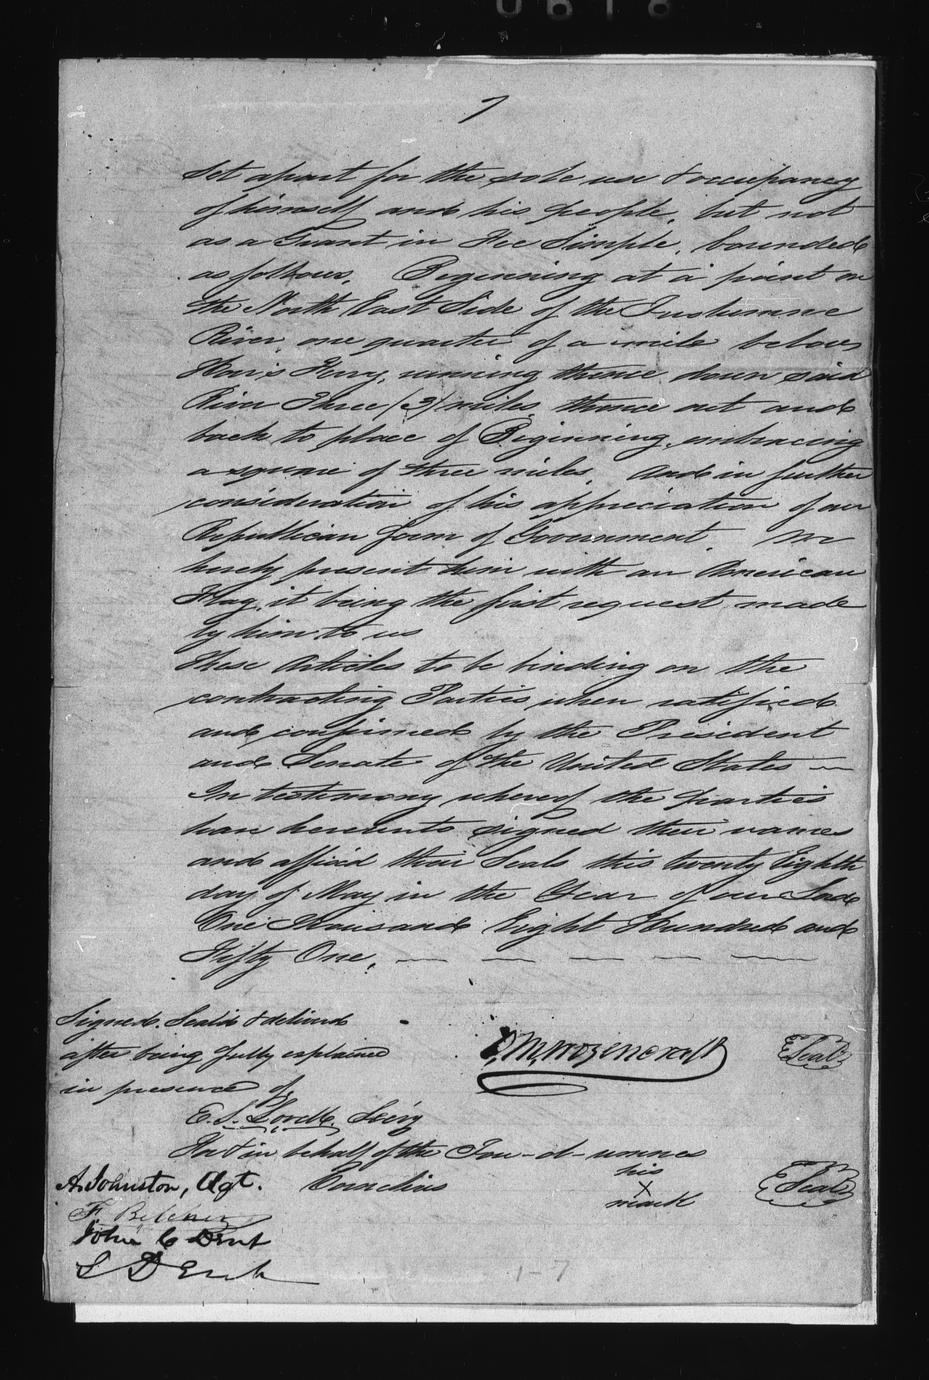 0618
7
set apart for the sole use & occupancy
of himself and his people, but not
as a Grant in Fee Simple, bounded
as follows, Beginning at a point on
the North East Side of the Tuolumne
River one quarter of a mile below
Ferry, running thence down said
River Three (3) miles, thence out and
back to place of Beginning, embracing
a square of three miles. And in further
consideration of his appreciation of our
Republican form of Government We
hereby present him with an American
Flag, it being the first request made
by him to us
These Articles to be binding on the
contracting Parties when ratified
and confirmed by the President
and Senate of the United States —
In testimony whereof the parties
have hereunto signed their names
and affix'd their Seals this twenty Eighth
day of May in the Year of our Lord
One Thousand Eight Hundred and
Fifty One, — — — — —
Signed, Sealed & deliverd
after being fully explained
in presence of
O. M. Wozencraft (Seal)
E. S. Lovell, Secy
For & in behalf of the Tou-d-umnes
A. Johnston, Agt.
Cornelius his X mark (Seal)
F. Belcher
John C Dent
L D Ent
1-7